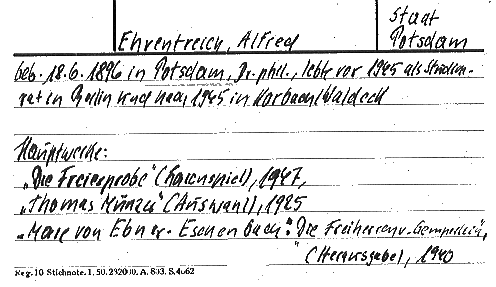 Stadt
Potsdam
Ehrentreich, Alfred
geb. 18.6.1896 in Potsdam, Dr. phil., lebte vor 1945 als Studien-
rat in Berlin und nach 1945 in Korbach/Waldeck
Hauptwerke:
„Die Freierprobe" 1947,
„Thomas Münzer" (Auswahl), 1925
„Marie von Ebner-Eschenbach: Die Freiherren v. Gemperlein"
(Herausgabe), 1940
Reg. 10 Stichnote. 1, 50. 232000. A. 803. S. 4662